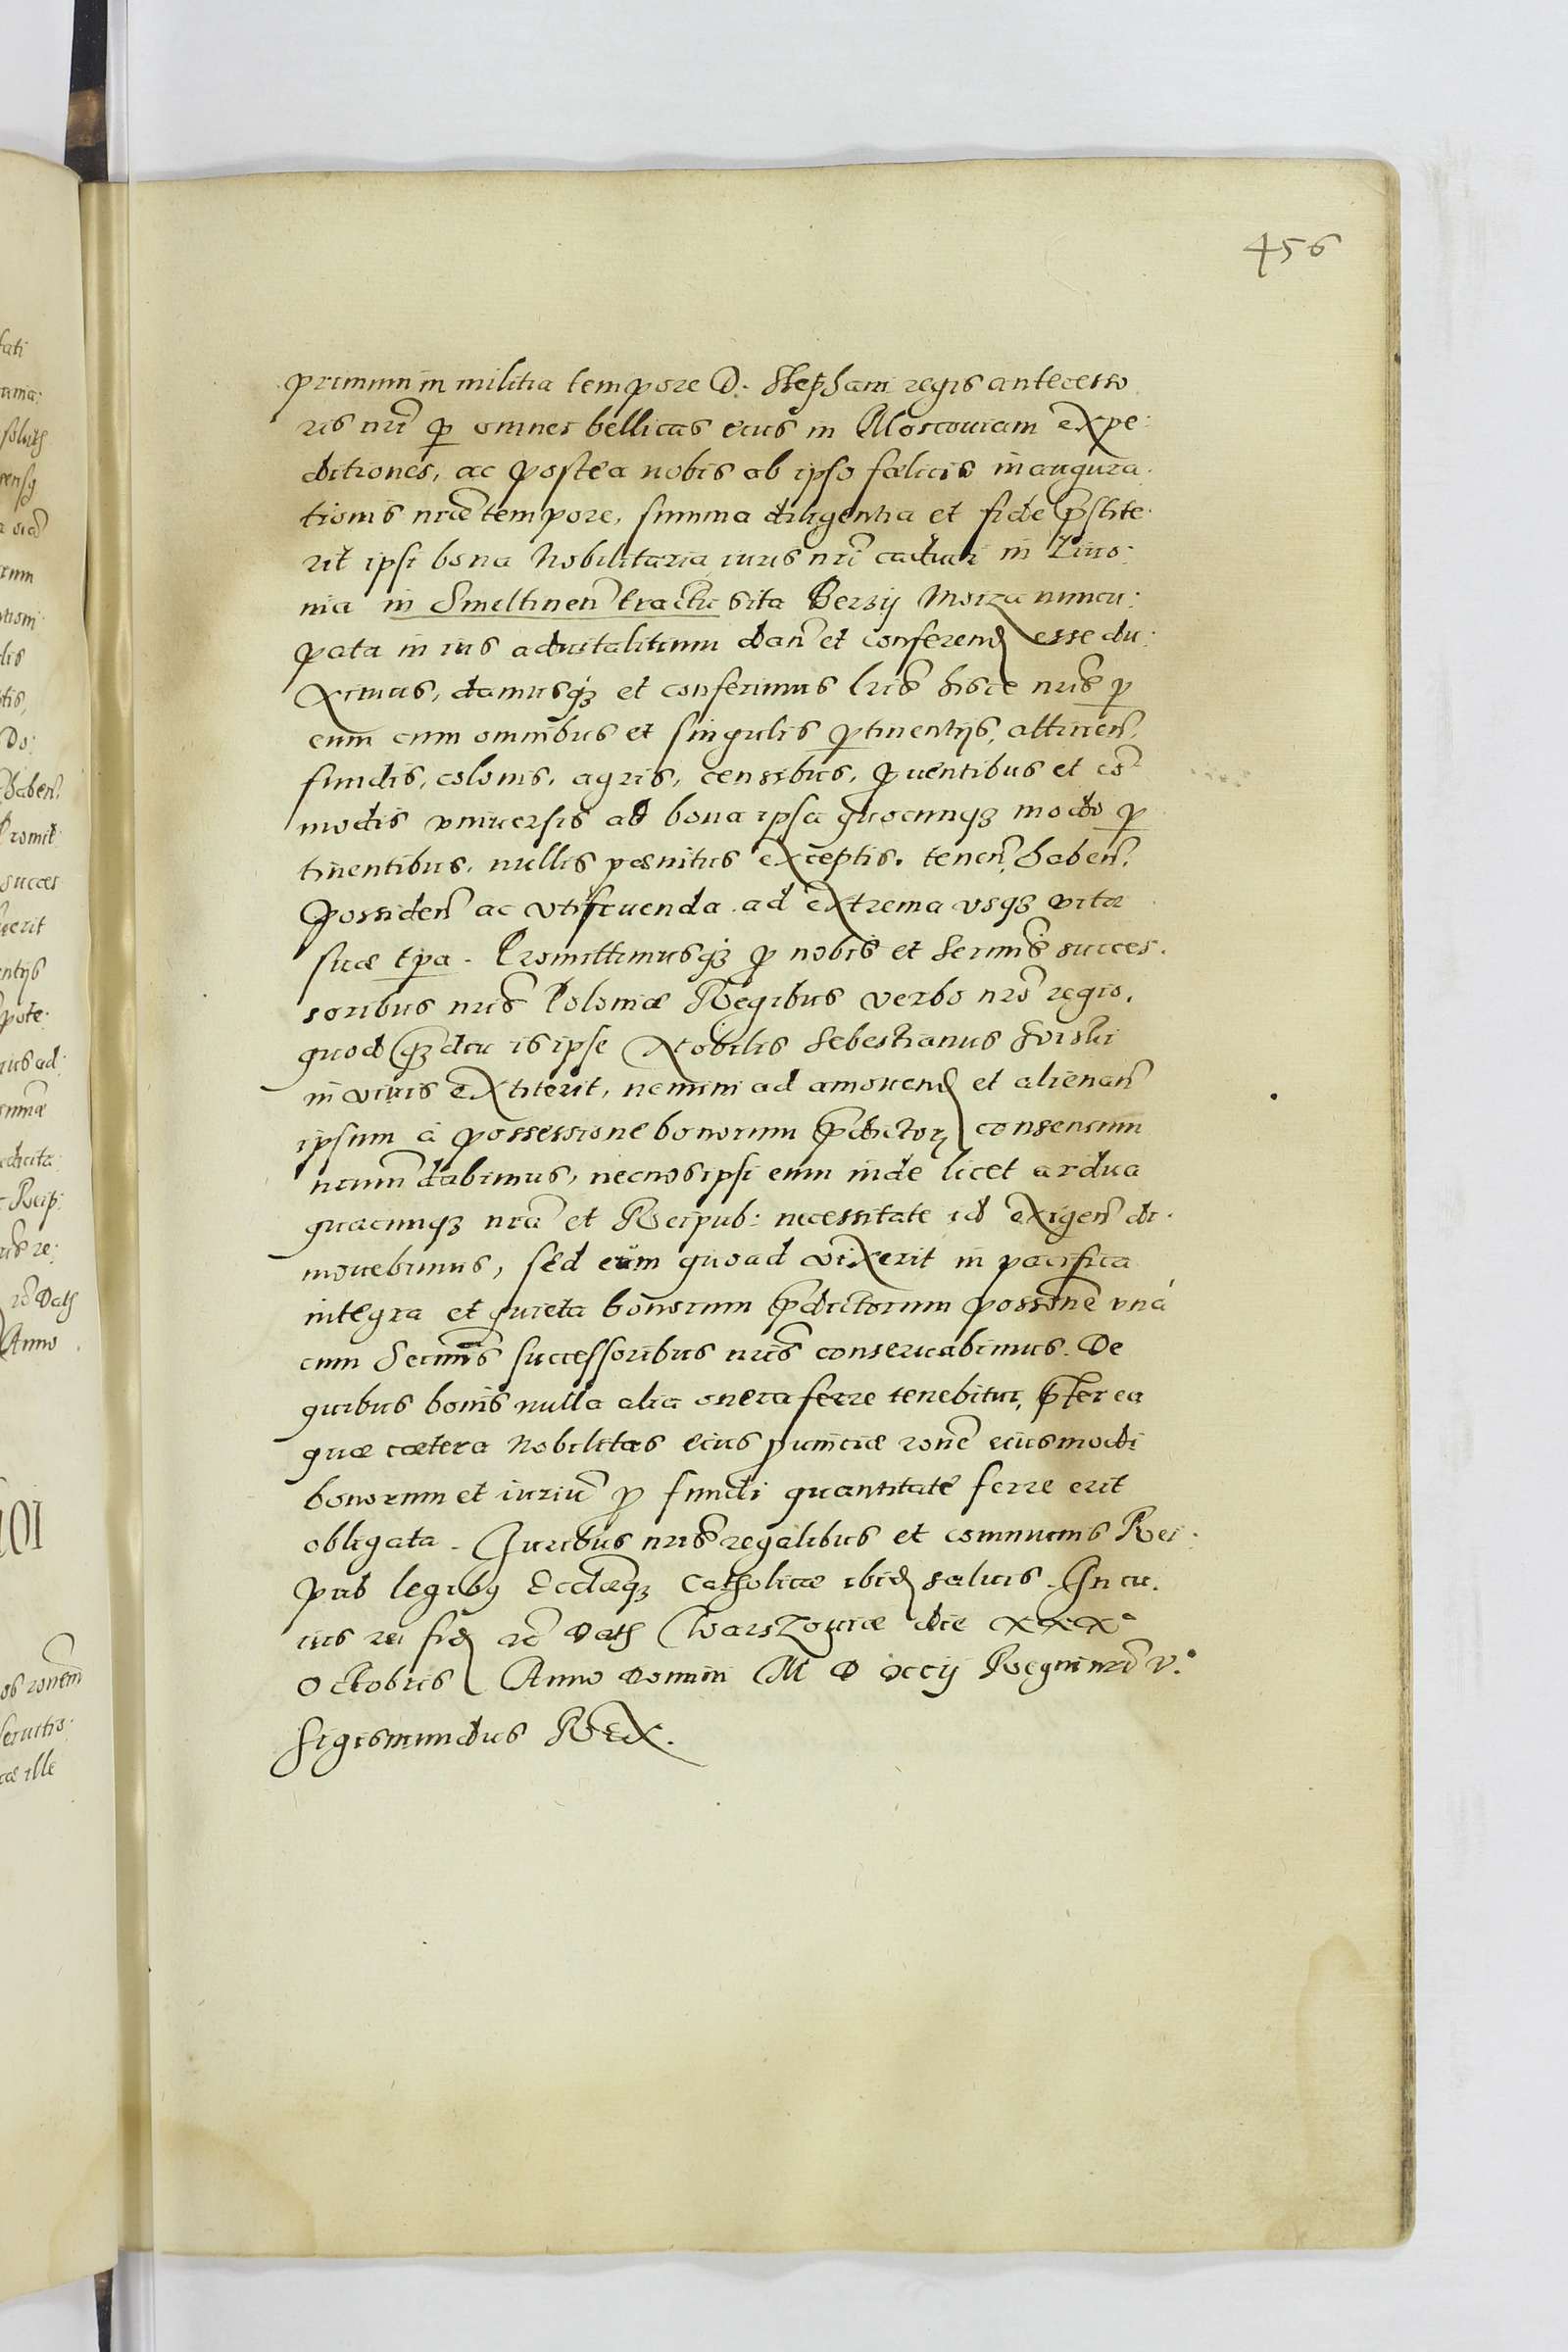 456
primum in militia tempore D. Stephani regis antecesso
ris nri̅ p̱ omnes bellicas eius in Moscouiam expe:
ditiones, ac postea nobis ab ipso fœlicis inaugura
tionis nræ̅ tempore, summa diligentia et fide p̅stite
rit ipsi bona Nobilitaria iuris nri̅ caduci in Liuo:
nia in Smeltinen̅ tractu sita Berzij Moiza nuncu:
pata in ius aduitalitium dan̅ et conferend esse du:
ximus, damusqʒ et conferimus lris̅ hisce nris̅ p̱
eum cum omnibus et singulis p̱tinentijs, attinen̅,
fundis, colonis, agris, censibus, prouentibus et co̅
modis vniuersis ad bona ipsa quocunqʒ modo p̱
tinentibus, nullis pœnitus exceptis. tenen̅, haben̅,
possiden̅ ac vtifruenda ad extrema vsqʒ vitæ
suæ tp̱a. Promittimusqʒ p̱ nobis et Sermis̅ succes.
soribus nris̅ Poloniæ Regibus verbo nro̅ regio,
quod qʒ̅diu is ipse Nobilis Sebestianus
in viuis extiterit, nemini ad amouend et alienan̅
ipsum à possessione bonorum p̅dictorꝝ consensum
nrum̅ dabimus, necnos ipsi eum inde licet ardua
quacunqʒ nra̅ et Reipub: necessitate id exigen̅ di.
mouebimus, sed eum quoad vixerit in pacifica
integra et quieta bonorum p̅dictorum possone̅ vná
cum Sermis̅ successoribus nris̅ conseruabimus. De
quibus bonis nulla alia onera ferre tenebitur, p̅ter ea
quæ cætera Nobilitas eius prouinciæ rone̅ eiusmodi
bonorum et iuriu̅ p̱ fundi quantitate ferre erit
obligata. Juribus nris̅ regalibus et communis Rei:
pub legibꝯ Eccliæqʒ̅ Catholicæ ibid saluis. In cu.
ius rei fid rc̅ Dath Warszouiæ die XXX°
Octobris Anno Domini M D XCij Regni nri̅ V.°
Sigismundus Rex.